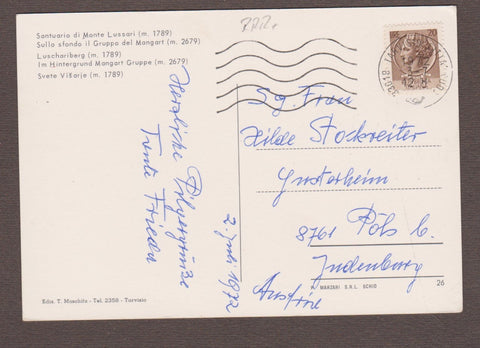 RRR.
Santuario di Monte Lussari (m. 1789)
Sullo sfondo il Gruppo del Mangart (m. 2679)
Luschariberg (m. 1789)
Im Hintergrund Mangart Gruppe (m. 2679)
Svete Višarje (m. 1789)
Herzliche Pilgergrüße
Tante Frieda
2. Juli 1972
Sg. Frau
Hilde Stockreiter
8761 Pöls b.
Judenburg
Austria
33018
Edit. T. Moschitz - Tel. 2358 - Tarvisio
MANZARI S.R.L. SCHIO
26